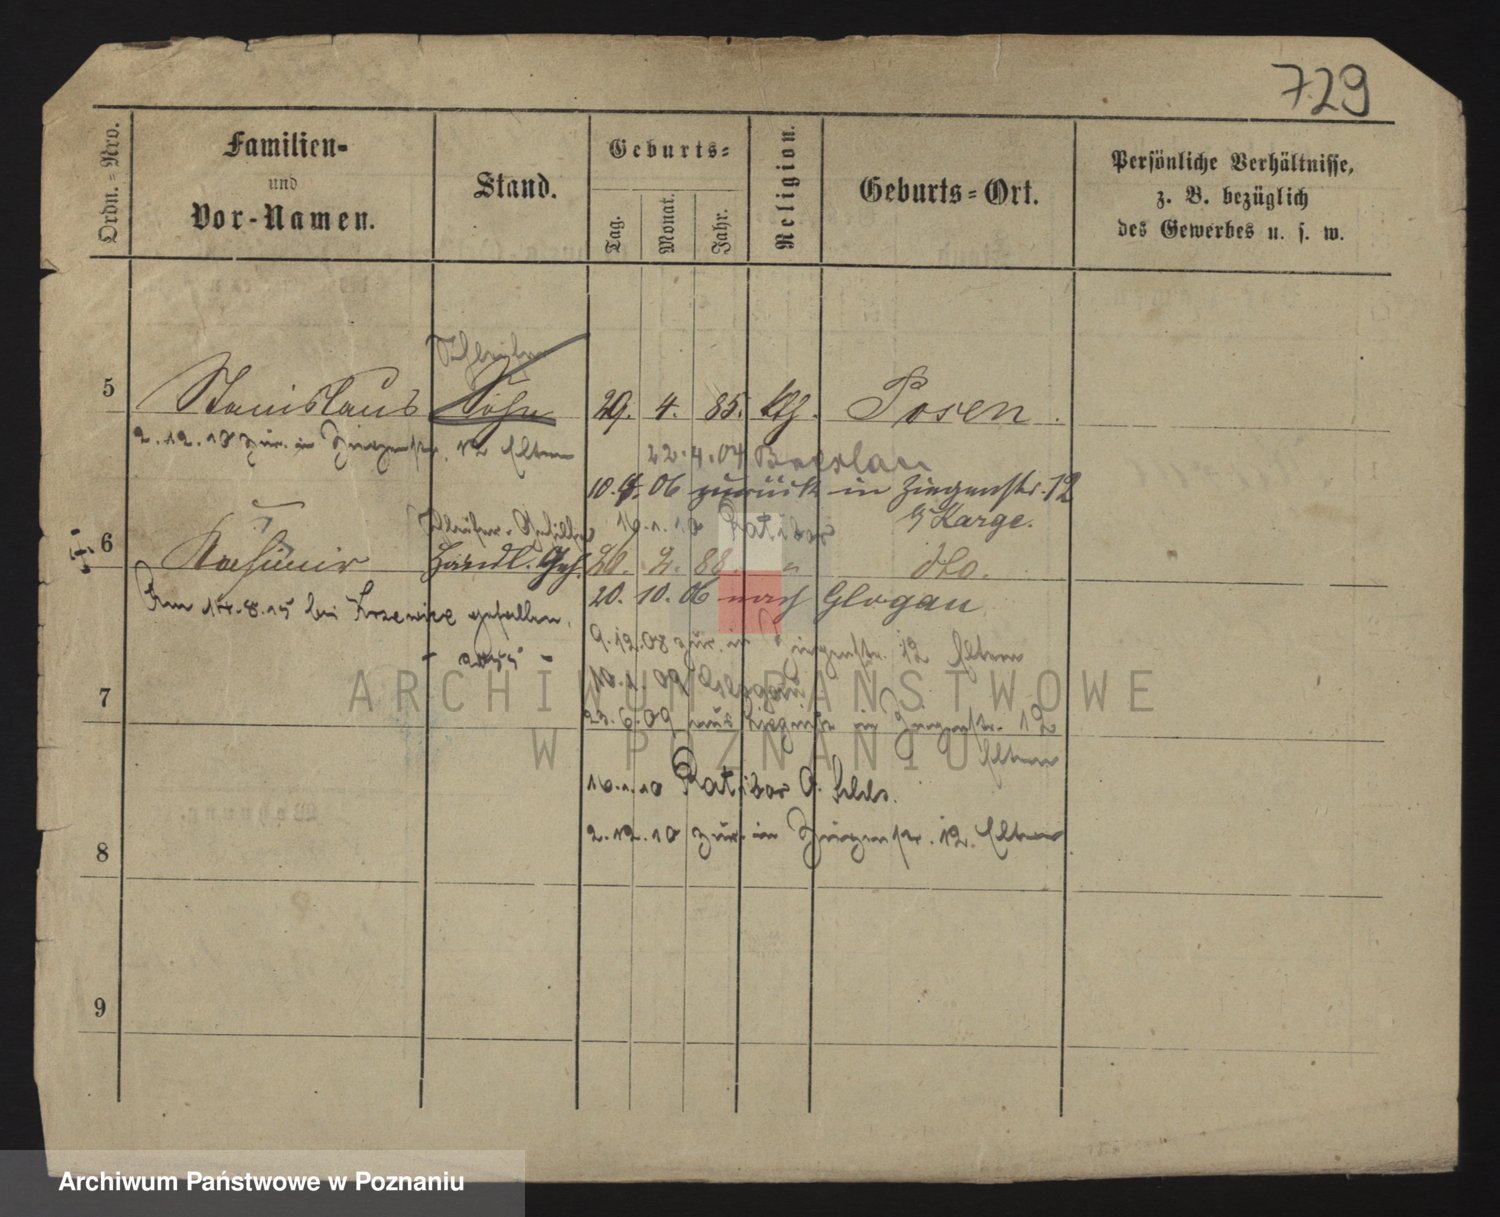 729
Ordn.=Nro.
Familien-
und
Vor-Namen.
Stand.
Geburts=
Tag.
Monat.
Jahr.
Religion.
Geburts=Ort.
Persönliche Verhältnisse,
z. B. bezüglich
des Gewerbes u. s. w.
5 Stanislaus Sohn 29. 4. 85. kth. Posen.
2.12.10 zur. in Ziegenstr. 12 Eltern
22.4.04 Breslau
10.9.06 zurück in Ziegenstr. 12
b/ Karge.
16.1.10 Ratibor
6 Kasimir Handl. Geh. 20. 2. 88. " dto.
20. 10. 06 nach Glogau
Am 14.8.15 bei Krzewice gefallen.
9.12.08 zur. in Ziegenstr. 12 Eltern
10.1.09 Glogau
7
23.6.09 aus Liegnitz in Ziegenstr. 12
Eltern
16.1.10 Ratibor O. Schls.
2.12.10 zur. in Ziegenstr. 12. Eltern
8
9
ARCHIWUM PAŃSTWOWE
W POZNANIU
Archiwum Państwowe w Poznaniu